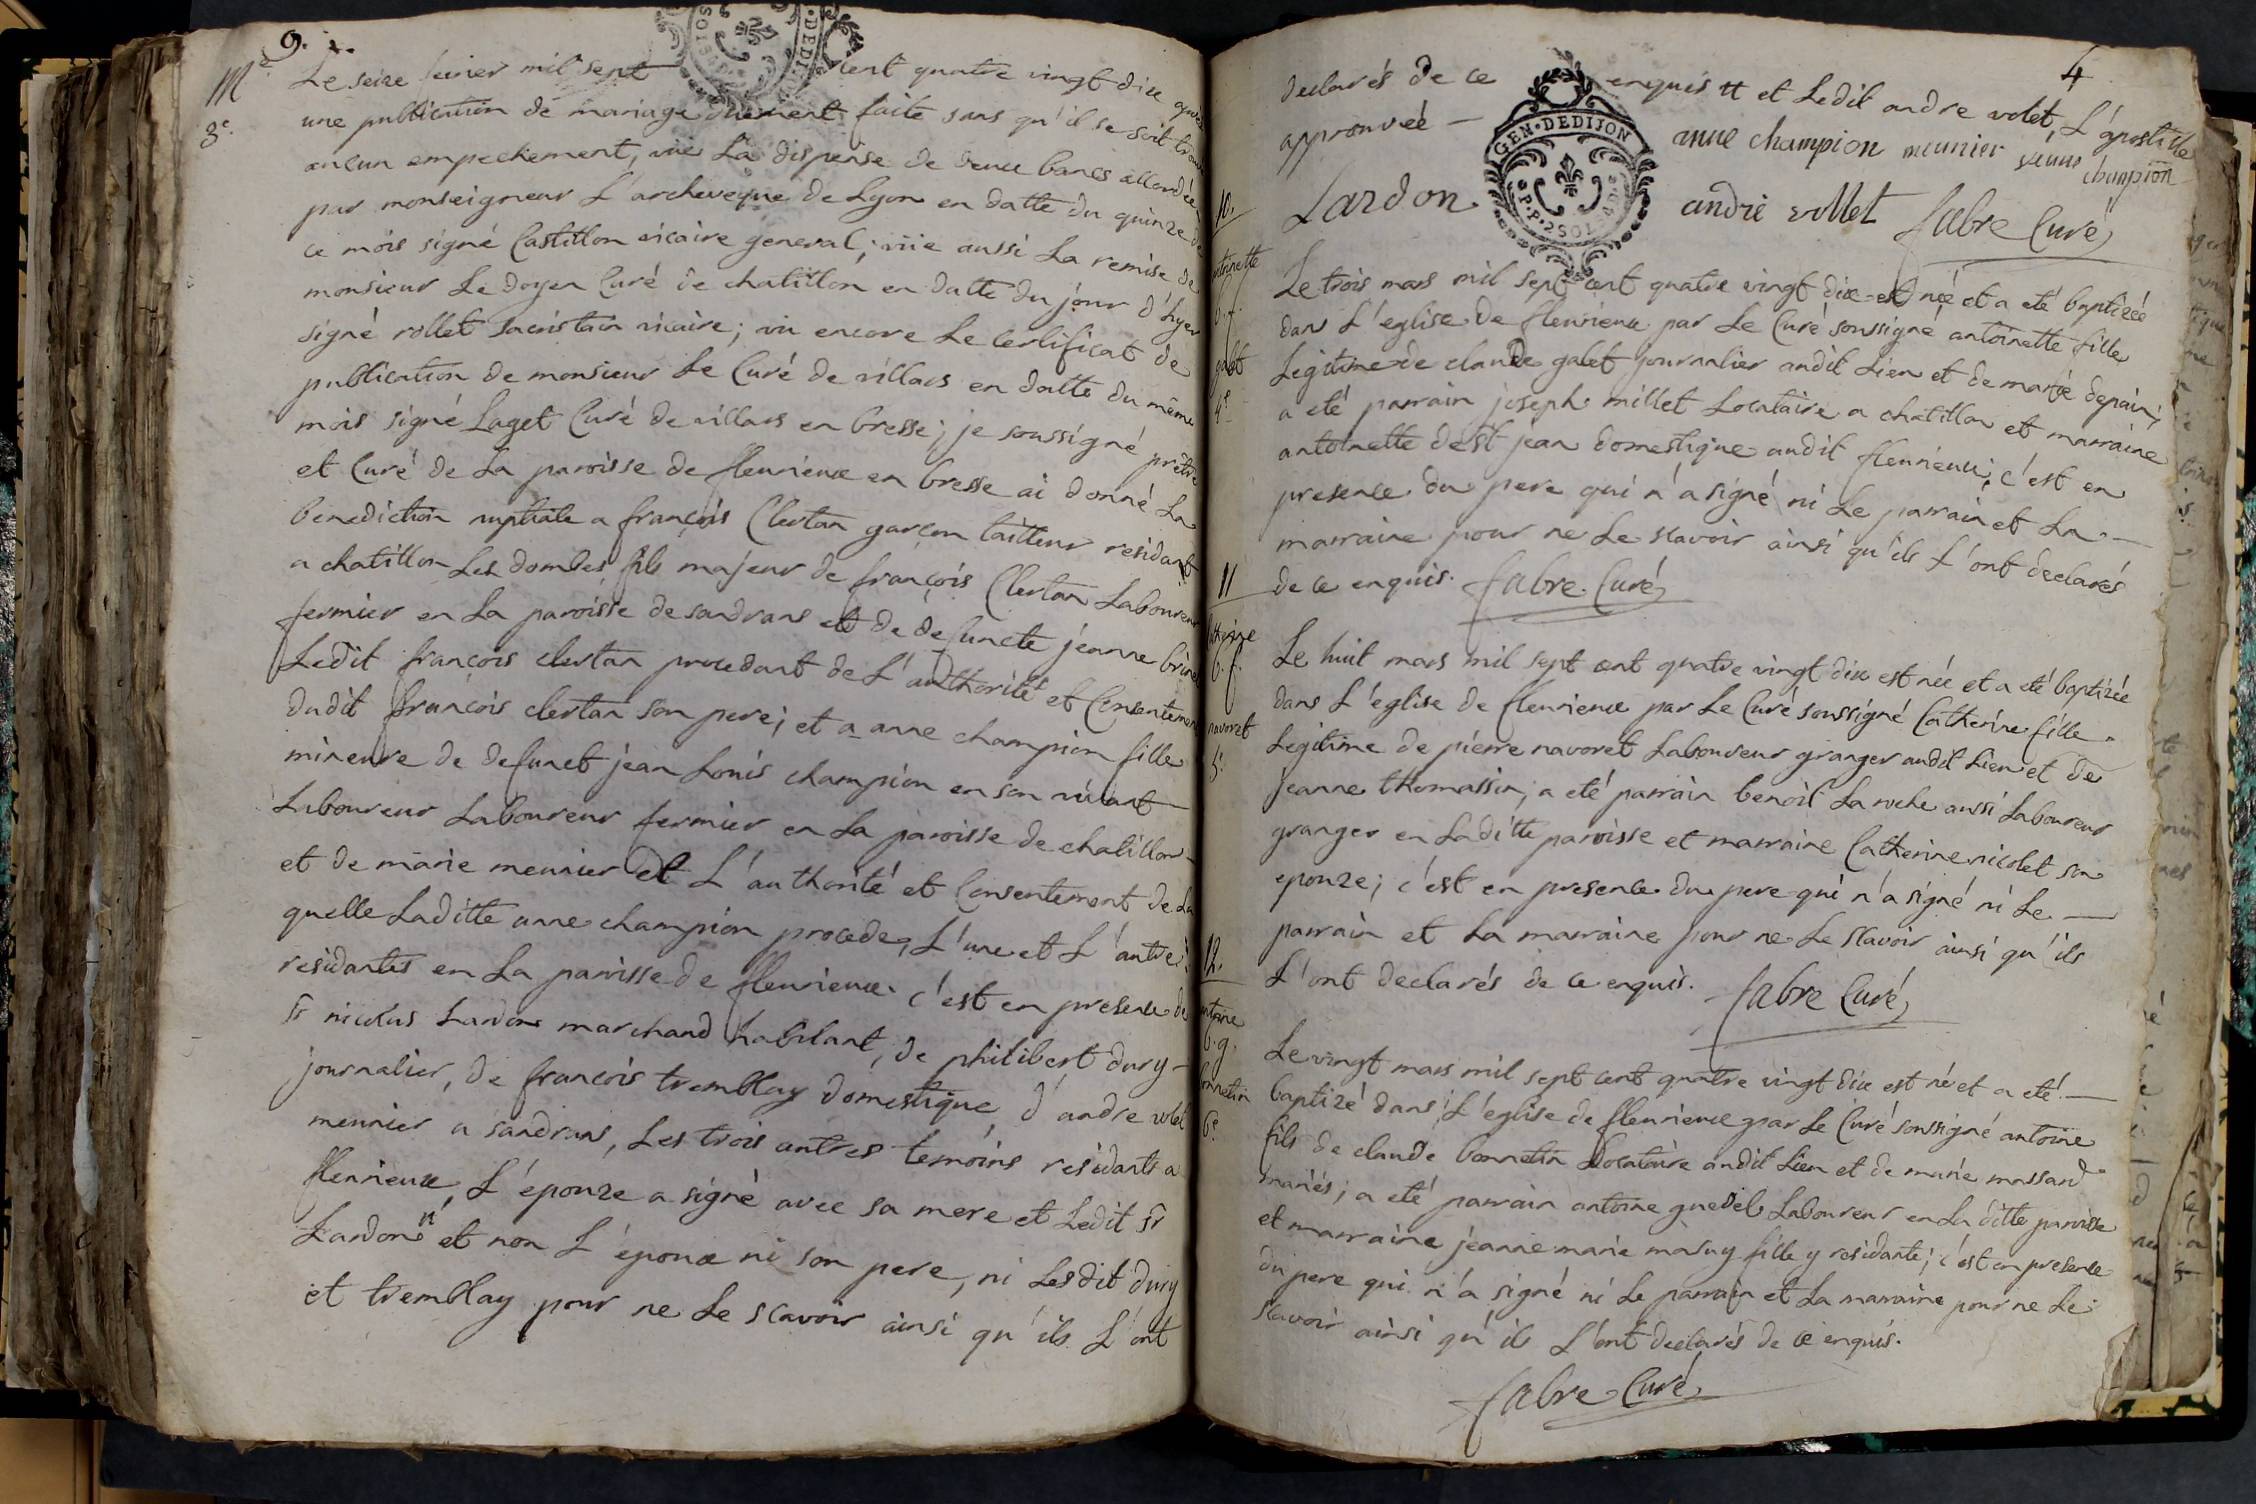 9.
M.e
3e.
Le seize fevrier mil sept cent quatre vingt dix après
une publication de mariage duement faite sans qu'il se soit trouvé
aucun empechement, vüe La dispense de deux bancs accordée
par monseigneur L'archeveque de Lyon en datte du quinze de
ce mois signé Castillon vicaire general; vüe aussi La remise de
monsieur Le doyen Curé de chatillon en datte du jour d'hyer
signé rollet sacristain vicaire; vu encore Le Certificat de
publication de monsieur Le Curé de villars en datte du même
mois signé Laget Curé de villars en bresse; je soussigné prêtre
et Curé de La paroisse de fleurieux en bresse ai donné La
benediction nuptiale a françois Clertan garçon tailleur residant
a chatillon Les dombes fils majeur de françois Clertan Laboureur
fermier en La paroisse de sandrans et de defuncte jeanne
Ledit françois clertan procedant de L'authorité et Consentement
dudit françois clertan son pere; et a anne champion fille
mineure de defunct jean Louis champion en son vivant
Laboureur Laboureur fermier en La paroisse de chatillon
et de marie meunier de L'authorité et Consentement de La
quelle Laditte anne champion procede, L'une et L'autre
residantes en La paroisse de fleurieux. c'est en presence de
sr nicolas Lardon marchand habitant, de philibert dury
journalier, de françois tremblay domestique, d'andre volet
meunier a sandrans, Les trois autres temoins residants a
fleurieux, L'épouze a signé avec sa mere et Ledit sr
Lardon tt et non L'époux ni son pere, ni Lesdit dury
et tremblay pour ne Le scavoir ainsi qu'ils L'ont
4
declarés de ce enquis tt et Ledit andre volet, L'apostille
approuvée
GEN. DE DIJON
P.P. 2 SOLS
anne champion meunier veuve champion
Lardon. andré vollet fabre Curé
10.
antoinette
b. f.
galet
4e
Le trois mars mil sept cent quatre vingt dix est née et a eté baptizée
dans L'eglise de fleurieux par Le Curé soussigné antoinette fille
Legitime de claude galet journalier audit Lieu et de marie depain;
a eté parrain joseph millet Locataire a chatillon et marraine
antoinette de st jean domestique audit fleurieux; c'est en
presence du pere qui n'a signé ni Le parrain et La
marraine pour ne Le scavoir ainsi qu'ils L'ont declarés
de ce enquis. fabre Curé
11
Catherine
b. f.
navoret
5e.
Le huit mars mil sept cent quatre vingt dix est née et a eté baptizée
dans L'eglise de fleurieux par Le Curé soussigné Catherine fille
Legitime de pierre navoret Laboureur granger audit Lieu et de
jeanne thomassin; a eté parrain benoit La roche aussi Laboureur
granger en Laditte paroisse et marraine Catherine nicolet son
epouze; c'est en presence du pere qui n'a signé ni Le
parrain et La marraine pour ne Le scavoir ainsi qu'ils
L'ont declarés de ce enquis. fabre Curé
12.
antoine
b. g.
bonnetin
6e.
Le vingt mars mil sept cent quatre vingt dix est né et a eté
baptizé dans L'eglise de fleurieux par Le Curé soussigné antoine
fils de claude bonnetin Locataire audit Lieu et de marie massard
mariés; a eté parrain antoine guedel Laboureur en La ditte paroisse
et marraine jeanne marie fille y residante; c'est en presence
du pere qui n'a signé ni Le parrain et La marraine pour ne Le
scavoir ainsi qu'ils L'ont declarés de ce enquis.
fabre Curé